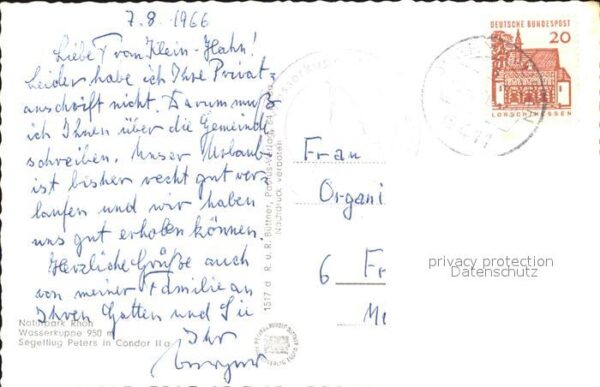 7.8.1966
Liebe Frau Klein-Hahn!
Leider habe ich Ihre Privat=
anschrift nicht. Darum muß
ich Ihnen über die Gemeinde
schreiben. Unser Urlaub
ist bisher recht gut ver=
laufen und wir haben
uns gut erholen können.
Herzliche Grüße auch
von meiner Familie an
Ihren Gatten und Sie
Ihr
Naturpark Rhön
Wasserkuppe 950 m
Segelflug Peters in Condor II a
1517 d R. u. R. Büttner,
Nachdruck verboten
DEUTSCHE BUNDESPOST
20
LORSCH/HESSEN
Frau
Organi
6 Fr
privacy protection
Datenschutz